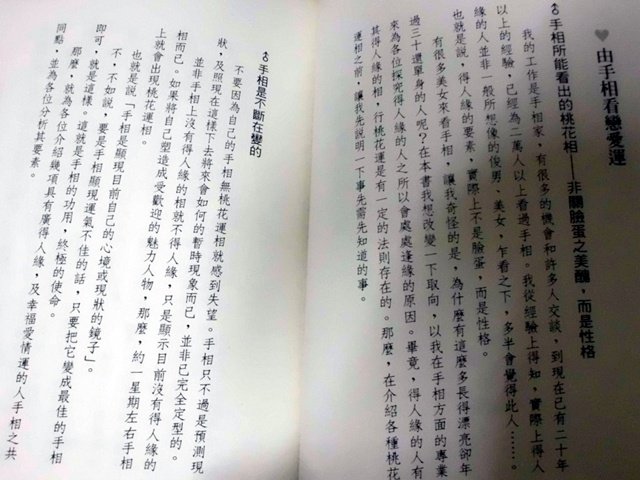 ♥由手相看戀愛運
手相所能看出的桃花相——非關臉蛋之美醜，而是性格
我的工作是手相家，有很多的機會和許多人交談，到現在已有二十年
以上的經驗，已經為二萬人以上看過手相。我從經驗上得知，實際上得人
緣的人並非一般所想像的俊男、美女，乍看之下，多半會覺得此人……。
也就是說，得人緣的要素，實際上不是臉蛋，而是性格。
有很多美女來看手相，讓我奇怪的是，為什麼有這麼多長得漂亮卻年
過三十還單身的人呢？在本書我想改變一下取向，以我在手相方面的專業
來為各位探究得人緣的人之所以會處處逢緣的原因。畢竟，得人緣的人有
其得人緣的相，行桃花運是有一定的法則存在的。那麼，在介紹各種桃花
運相之前，讓我先說明一下事先需先知道的事。
手相是不斷在變的
不要因為自己的手相無桃花運相就感到失望。手相只不過是預測現
狀，及照現在這樣下去將來會如何的暫時現象而已，並非已完全定型的。
並非手相上沒有得人緣的相就不得人緣，只是顯示目前沒有得人緣的
相而已。如果將自己塑造成受歡迎的魅力人物，那麼，約一星期左右手相
上就會出現桃花運相。
也就是說「手相是顯現目前自己的心境或現狀的鏡子」。
不，不如說，要是手相顯現運氣不佳的話，只要把它變成最佳的手相
即可，就是這樣。這就是手相的功用，終極的使命。
那麼，就為各位介紹幾項具有廣得人緣，及幸福愛情運的人手相之共
同點，並為各位分析其要素。